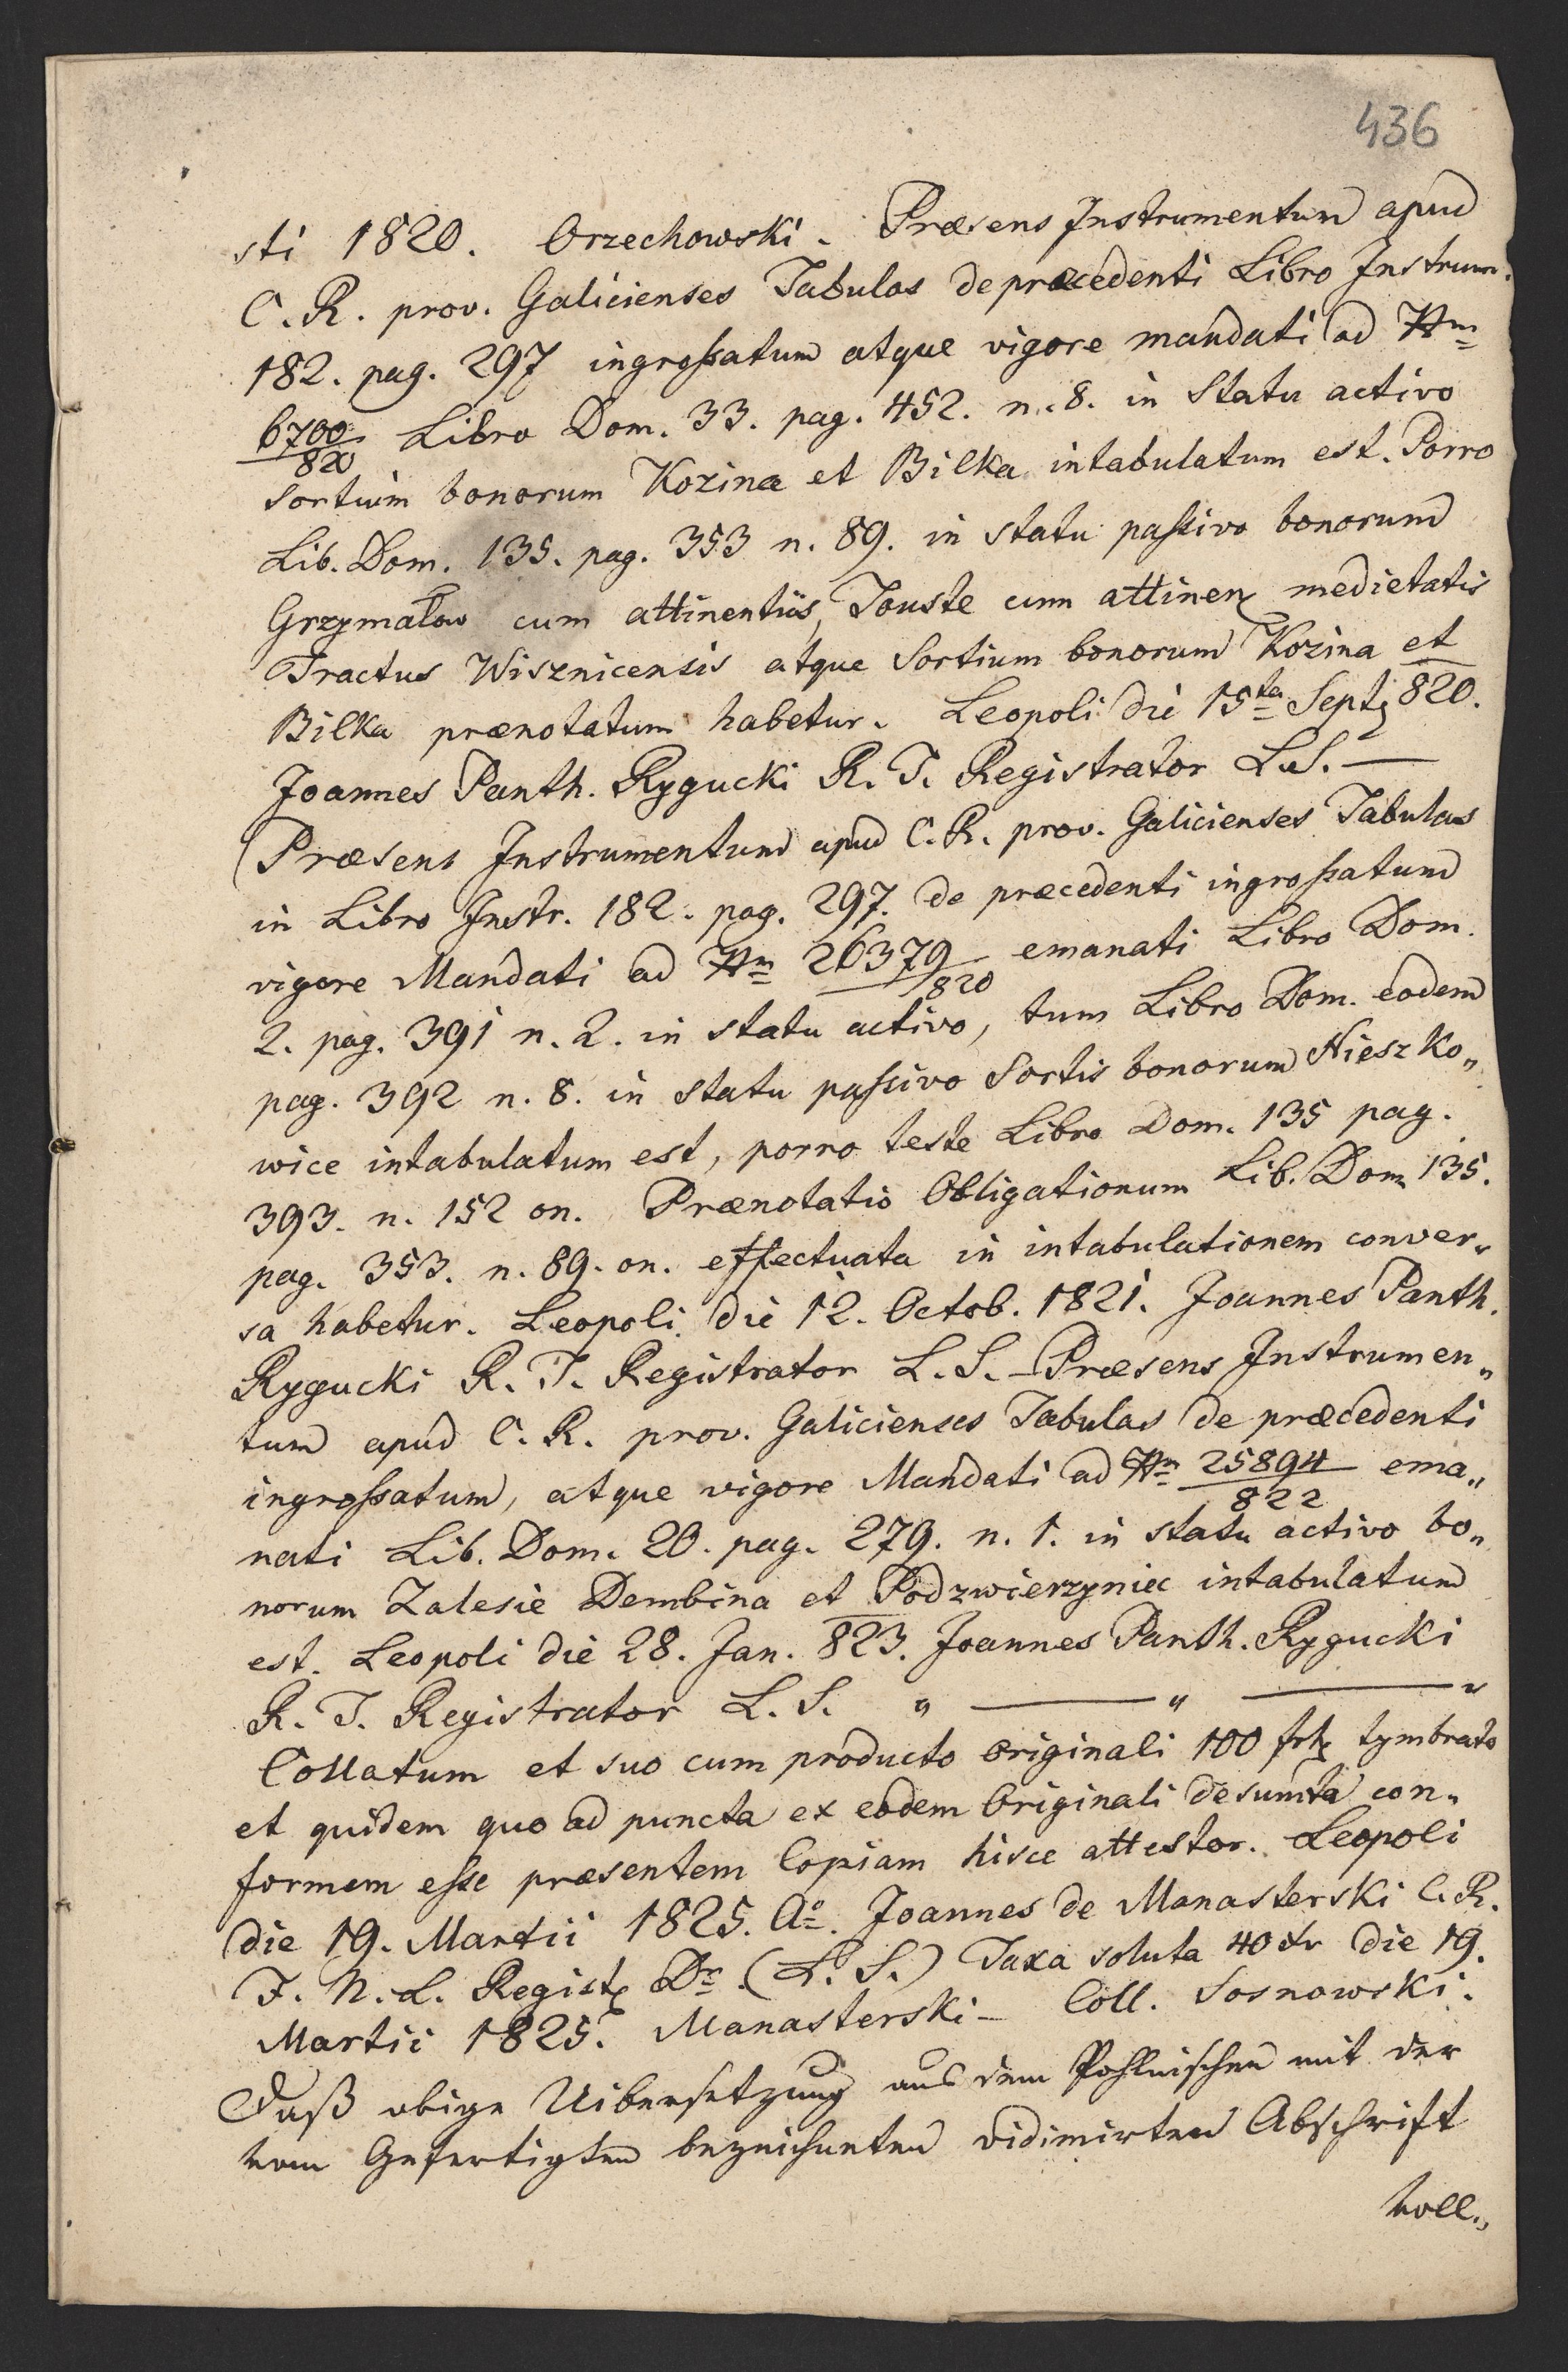 436
sti 1820. Orzechowski. Præsens Instrumentum apud
C. R. prov. Galicienses Tabulas de præcedenti Libro Instrum.
182. pag. 297 ingroßatum atque vigore mandati ad Nm
6700/820 Libro Dom. 33. pag. 452. n. 8. in Statu activo
Sortium bonorum Kozina et Bilka intabulatum est. Porro
Lib. Dom. 135. pag. 353 n. 89. in statu paßivo bonorum
Grzymałow cum attinentiis, Touste cum attinen medietatis
Tractus Wisznicensis atque Sortium bonorum Kozina et
Bilka prænotatum habetur. Leopoli die 15ta Sept 820.
Joannes Panth. Rygucki R. T. Registrator L.S. —
Præsens Instrumentum apud C. R. prov. Galicienses Tabulas
in Libro Instr. 182. pag. 297. de præcedenti ingroßatum
vigore Mandati ad Nm 26379/820 emanati Libro Dom.
2. pag. 391 n. 2. in statu activo, tum Libro Dom. eodem
pag. 392 n. 8. in statu paßivo Sortis bonorum Nieszko„
wice intabulatum est, porro teste Libro Dom. 135 pag.
393. n. 152 on. Prænotatio Obligationum Lib. Dom 135.
pag. 353. n. 89. on. effectuata in intabulationem conver„
sa habetur. Leopoli die 12. Octob. 1821. Joannes Panth.
Rygucki R. T. Registrator L. S. – Præsens Instrumen„
tum apud C. R. prov. Galicienses Tabulas de præcedenti
ingroßatum, atque vigore Mandati ad Nm 25894/822 ema„
nati Lib. Dom. 20. pag. 279. n. 1. in statu activo bo„
norum Zalesie Dembina et Podzwierzyniec intabulatum
est. Leopoli die 28. Jan. 823. Joannes Panth. Rygucki
R. T. Registrator L. S. „ — „ — „
Collatum et suo cum producto originali 100 fr tymbrato
et quidem quo ad puncta ex eodem Originali desumta con„
formem eße præsentem Copiam hisce attestor. Leopoli
die 19. Martii 1825. Ao. Joannes de Manasterski C. R.
F. N. L. Regist Dr. (L. S.) Taxa soluta 40 xr die 19.
Martii 1825. Manasterski – Coll. Sosnowski.
Daß obige Uibersetzung aus dem Pohlnischen mit der
vom Gefertigten bezeichneten vidimirten Abschrift
voll„